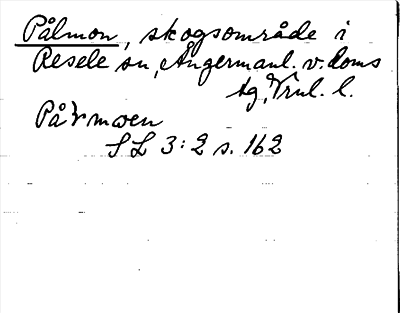 Pålmon, skogsområde i
Resele sn, Ångermanl. v. doms
tg, Vnl. l.
Påλrmoen
SL 3:2 s. 162